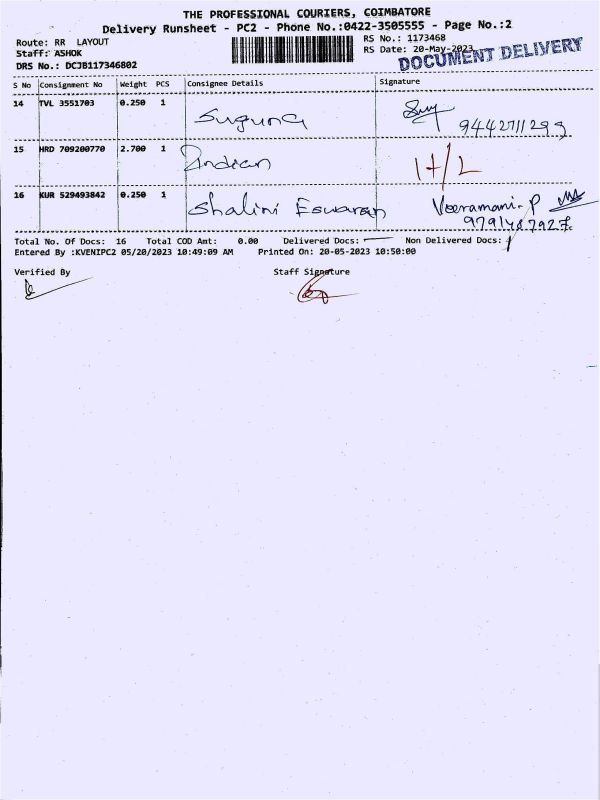 THE PROFESSIONAL COURIERS, COIMBATORE
Delivery Runsheet - PC2 - Phone No.:0422-3505555 - Page No.:2
Route: RR LAYOUT
RS No.: 1173468
Staff: ASHOK
RS Date: 20-May-2023
DRS No.: DCJB117346802
DOCUMENT DELIVERY
S No Consignment No Weight PCS Consignee Details Signature
14 TVL 3551703 0.250 1 Suguna
9442711299
15 HRD 709200770 2.700 1 Indian
16 KUR 529493842 0.250 1 Shalini Eswaran Veeramani. P
9791487927
Total No. Of Docs: 16 Total COD Amt: 0.00 Delivered Docs: Non Delivered Docs:
Entered By :KVENIPC2 05/20/2023 10:49:09 AM Printed On: 20-05-2023 10:50:00
Verified By Staff Signature